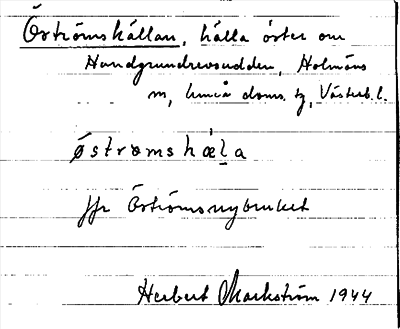 Öströmshällan, hälla öster om
Handgrundrevsudden, Holmöns
sn, Umeå doms. tg, Västerb. l.
östrømshæl̲a
jfr Öströmsnybruket
Herbert Markström 1944